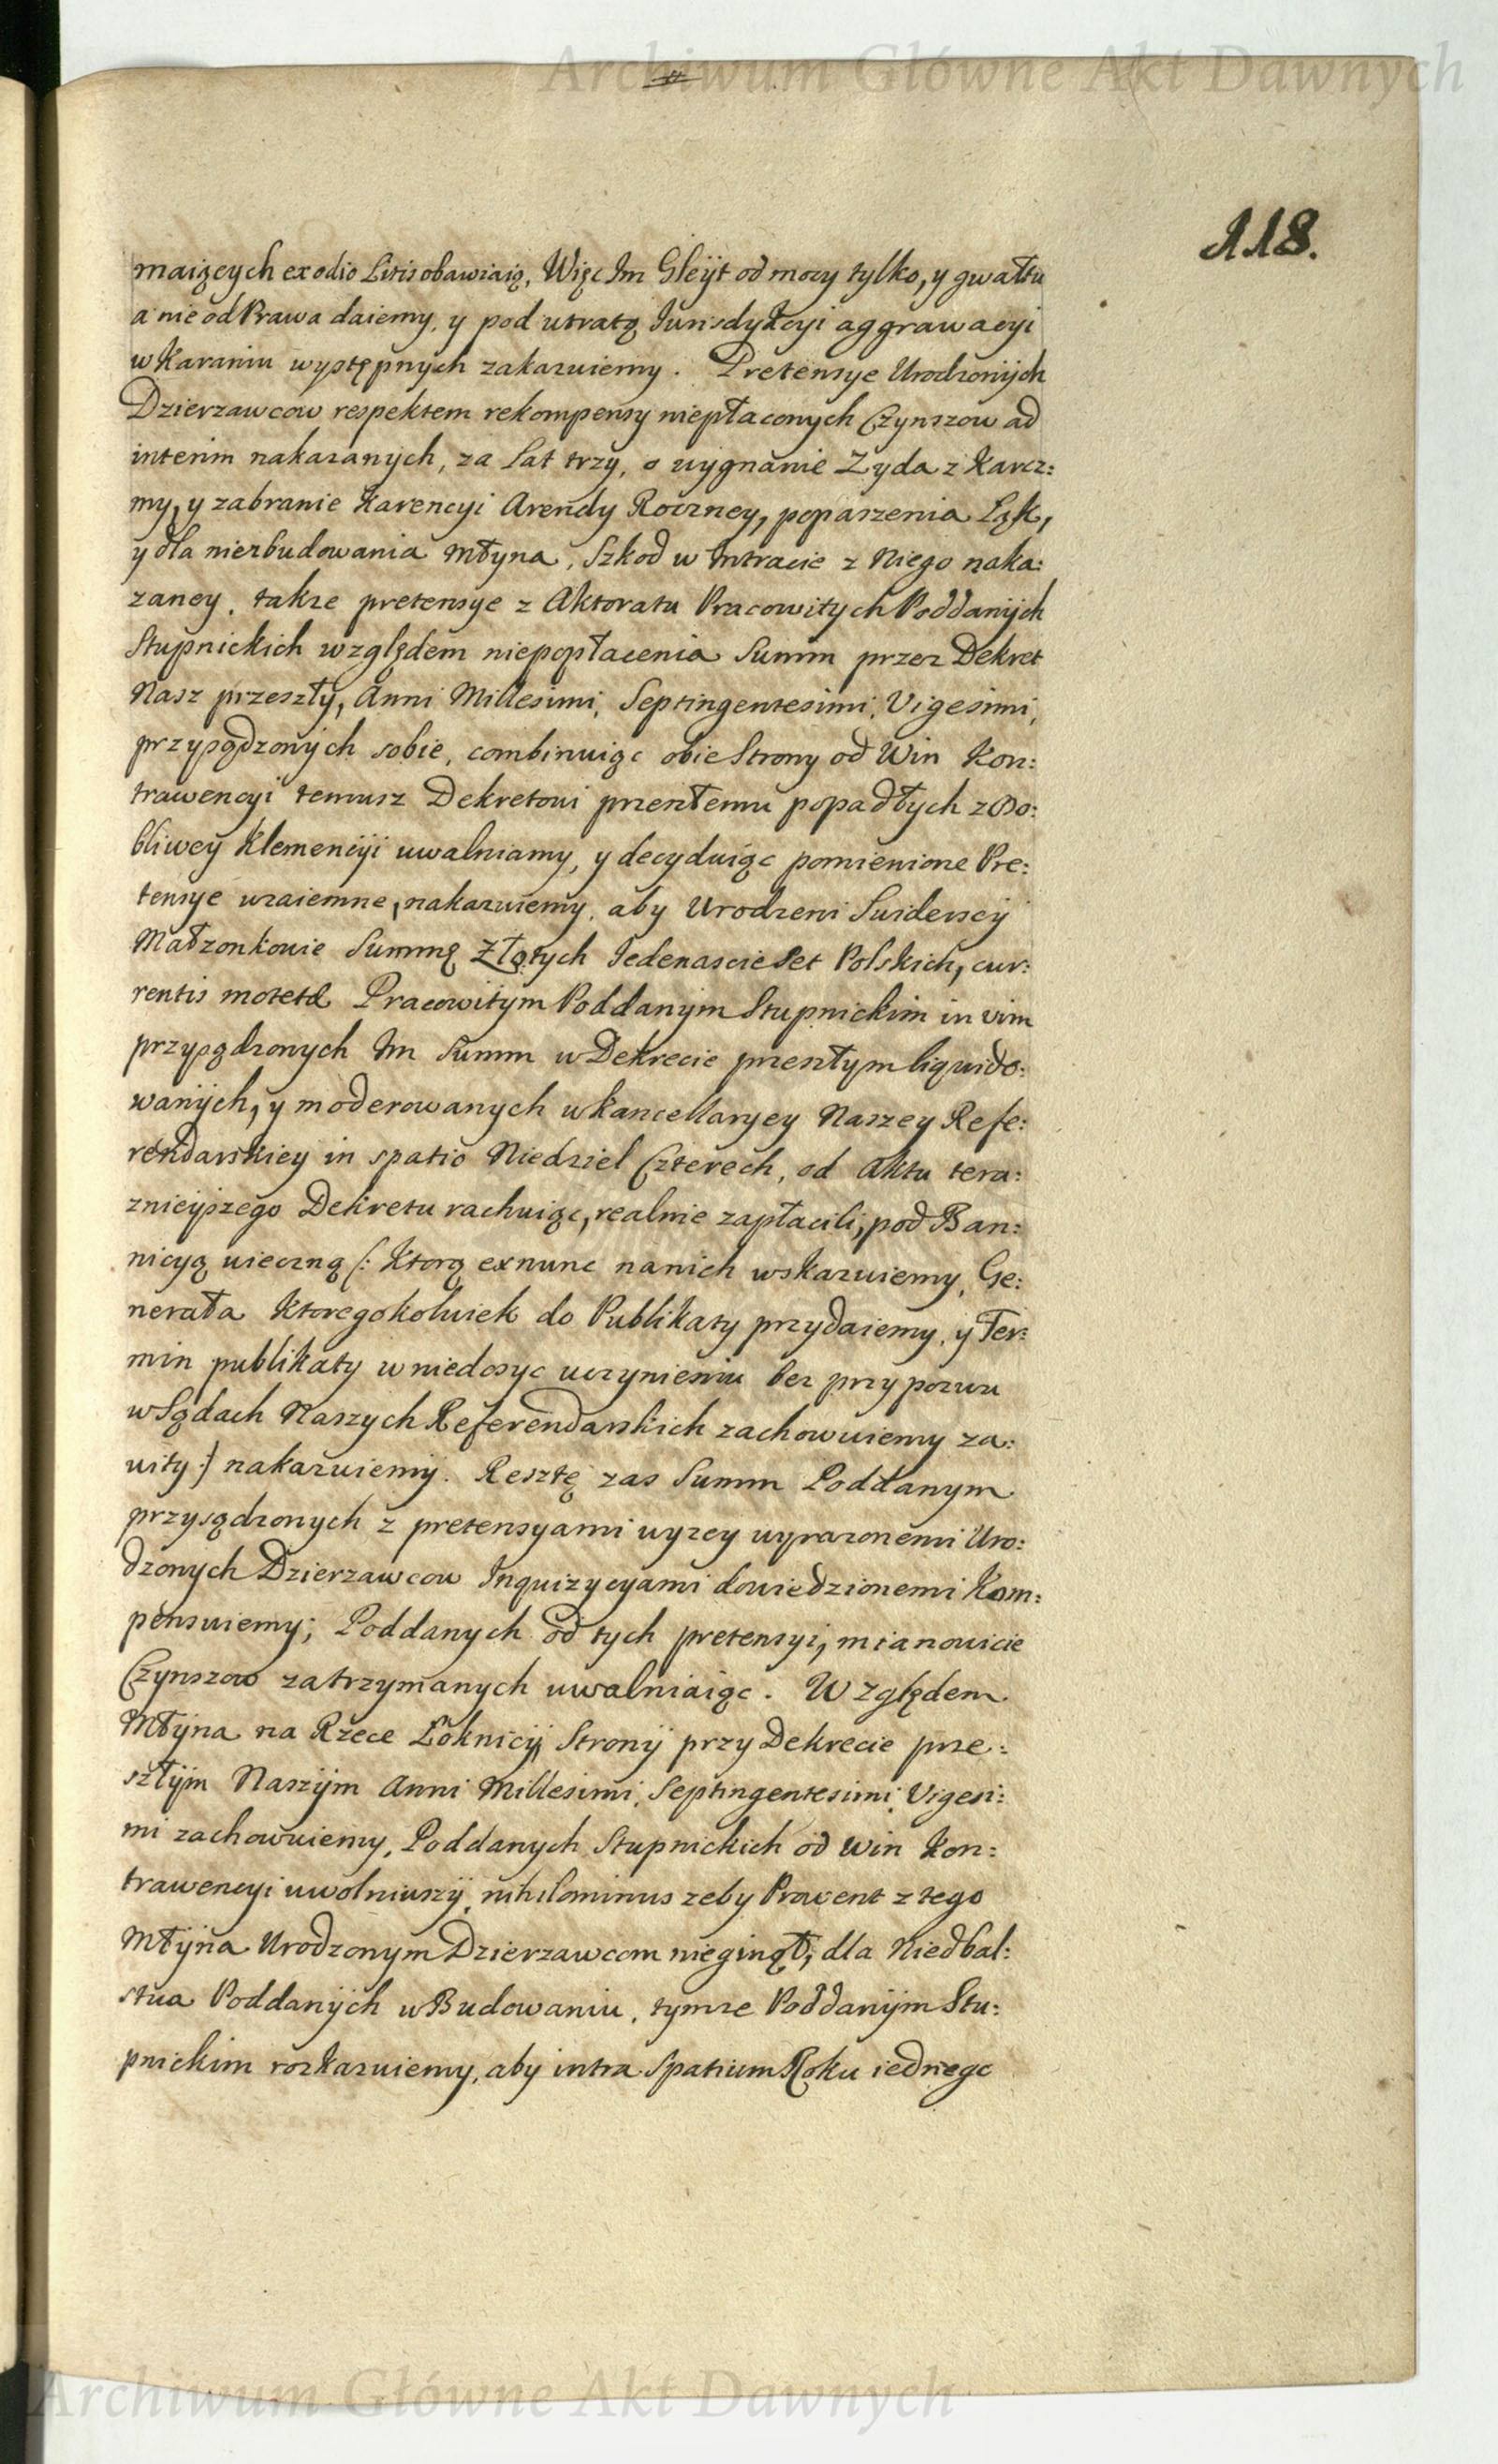 Archiwum Główne Akt Dawnych
118.
maiących ex odio Litis obawiaią, Więc Im Gleyt od mocy tylko, y gwałtu
a nie od Prawa daiemy, y pod utratą Iurisdykcyi aggrawacyi
w Karaniu występnych zakazuiemy. Pretensye Urodzonych
Dzierzawcow respektem rekompensy niepłaconych Czynszow ad
interim nakazanych, za Lat trzy, o wygnanie Zyda z Karcz:
my, y zabranie Karencyi Arendy Roczney, popaszenia Łąk,
y dla niezbudowania Młyna, Szkod w Intracie z Niego naka:
zaney, takze pretensye z Aktoratu Pracowitych Poddanych
Stupnickich względem niepopłacenia Summ przez Dekret
Nasz przeszły, Anni Millesimi, Septingentesimi, Vigesimi,
przysądzonych sobie, combinuiąc obie Strony od Win Kon:
trawencyi temusz Dekretowi przeszłemu popadłych z Oso:
bliwey Klemencyi uwalniamy, y decyduiąc pomienione Pre:
tensye wzaiemne, nakazuiemy, aby Urodzeni Swiderscy
Małzonkowie Summę Złotych Iedenascie Set Polskich, cur:
rentis monetæ Pracowitym Poddanym Stupnickim in vim
przysądzonych Im Summ w Dekrecie przeszłym liquido:
wanych, y moderowanych w Kancellaryey Naszey Refe:
rendarskiey in spatio Niedziel Czterech, od Aktu tera:
znieyszego Dekretu rachuiąc, realnie zapłacili, pod Ban:
nicyą wieczną (: Ktorą exnunc na nich wskazuiemy, Ge:
nerała Ktoregokolwiek do Publikaty przydaiemy, y Ter:
min publikaty w niedosyc uczynieniu bez przypozwu
w Sądach Naszych Referendarskich zachowuiemy za:
wity :) nakazuiemy. Resztę zas Summ Poddanym
przysądzonych z pretensyami wyzey wyrazonemi Uro:
dzonych Dzierzawcow Inquizycyami dowiedzionemi Kom:
pensuiemy; Poddanych od tych pretensyi, mianowicie
Czynszow zatrzymanych uwalniaiąc. Względem
Młyna na Rzece Łoknicy Strony przy Dekrecie prze:
szłym Naszym Anni Millesimi, Septingentesimi, Vigesi:
mi zachowuiemy, Poddanych Stupnickich od Win Kon:
trawencyi uwolniwszy, nihilominus zeby Prowent z tego
Młyna Urodzonym Dzierzawcom nieginął, dla Niedbal:
stwa Poddanych w Budowaniu, tymze Poddanym Stu:
pnickim rozkazuiemy, aby intra spatium Roku iednego
Archiwum Główne Akt Dawnych